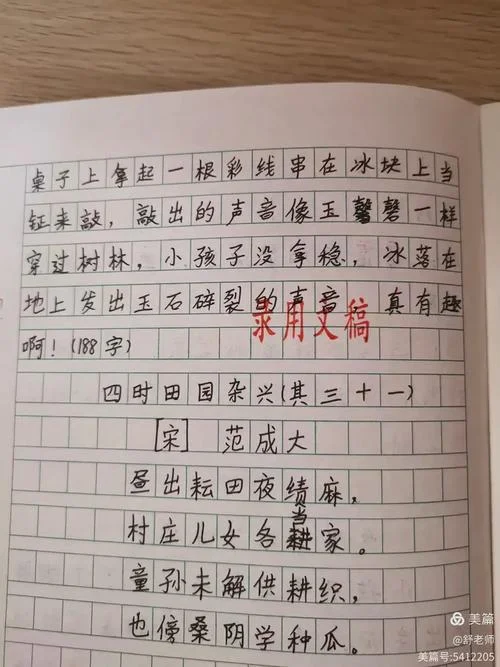 桌子上拿起一根彩线串在冰块上当
钲来敲，敲出的声音像玉磬一样
穿过树林，小孩子没拿稳，冰落在
地上发出玉石碎裂的声音 真有趣
啊！(188字)
录用文稿
四时田园杂兴(其三十一)
[宋] 范成大
昼出耘田夜绩麻，
村庄儿女各当家。
童孙未解供耕织，
也傍桑阴学种瓜。
美篇
@舒老师
美篇号:5412205